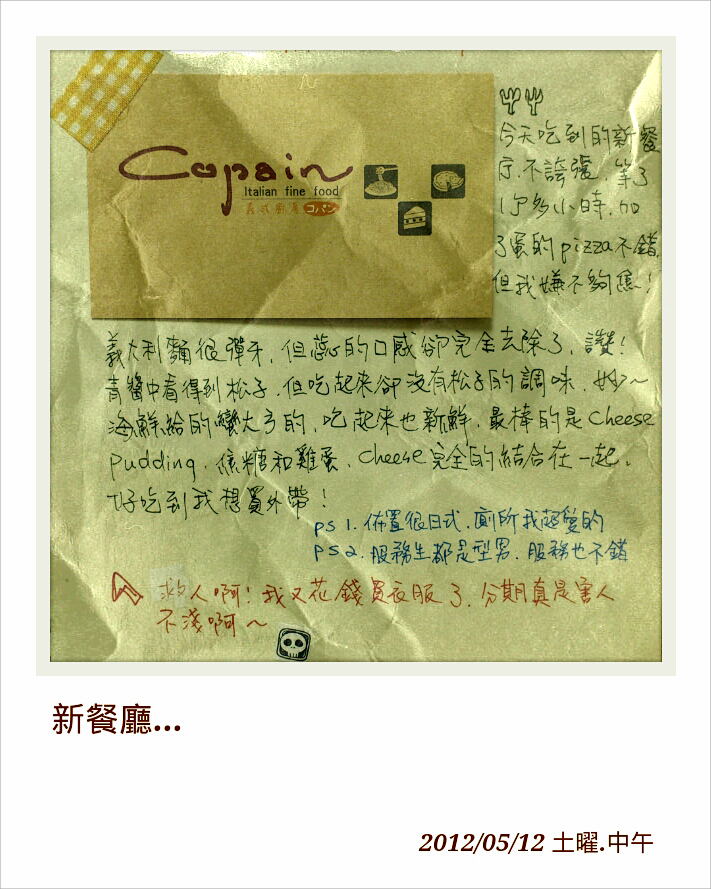 Copain
Italian fine food
義式廚房 コパン
今天吃到的新餐
厅.不誇張.等了
1個多小時.加
了蛋的pizza不錯.
但我嫌不夠焦!
義大利麵很彈牙.但蕊心的口感卻完全去除了.讚!
青醬中看得到松子.但吃起來卻沒有松子的調味.妙~
海鮮給的蠻大方的.吃起來也新鮮.最棒的是cheese
pudding.焦糖和雞蛋.cheese完全的結合在一起.
好吃到我想買外帶!
ps 1.佈置很日式.廁所我超愛的
ps 2.服務生都是型男.服務也不錯
救人啊!我又花錢買衣服了.分期真是害人
不淺啊~
新餐廳...
2012/05/12 土曜.中午